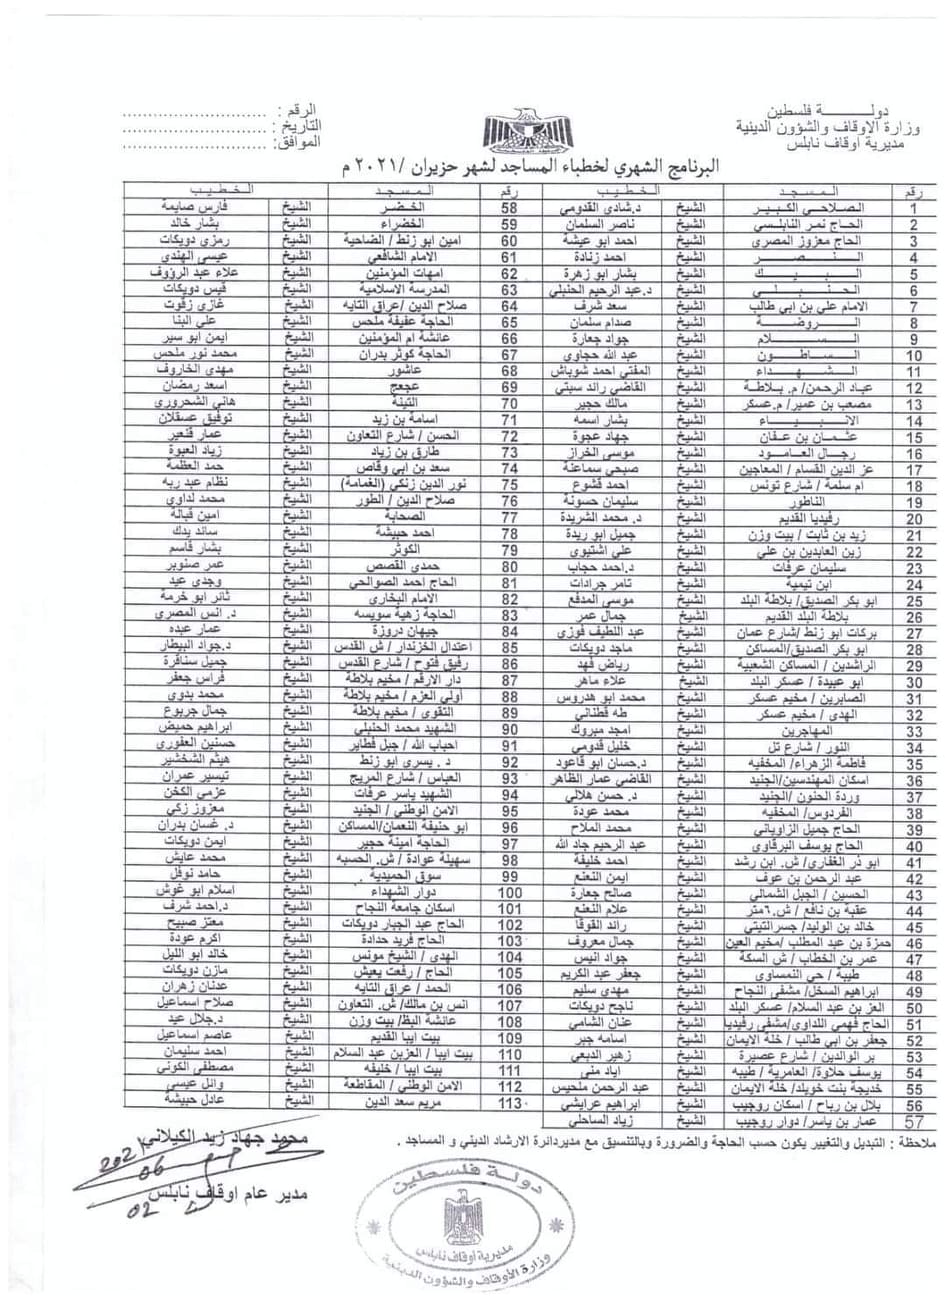 دولة فلسطين
وزارة الاوقاف والشؤون الدينية
مديرية أوقاف نابلس
الرقم : ............................
التاريخ : ............................
الموافق: ............................
البرنامج الشهري لخطباء المساجد لشهر حزيران /٢٠٢١ م
رقم المسجد الخطيب رقم المسجد الخطيب
1 الصلاحي الكبير الشيخ د.شادي القدومي 58 الخضر الشيخ فارس صايمة
2 الحاج نمر النابلسي الشيخ ناصر السلمان 59 الخضراء الشيخ بشار خالد
3 الحاج معزوز المصري الشيخ احمد ابو عيشة 60 امين ابو زنط / الضاحية الشيخ رمزي دويكات
4 النصر الشيخ احمد زنادة 61 الامام الشافعي الشيخ عيسى الهندي
5 البيك الشيخ بشار ابو زهرة 62 امهات المؤمنين الشيخ علاء عبد الرؤوف
6 الحنبلي الشيخ د.عبد الرحيم الحنبلي 63 المدرسة الاسلامية الشيخ قيس دويكات
7 الامام علي بن ابي طالب الشيخ سعد شرف 64 صلاح الدين /عراق التايه الشيخ غازي زقوت
8 الروضة الشيخ صدام سلمان 65 الحاجة عفيفة ملحس الشيخ علي البنا
9 السلام الشيخ جواد جعارة 66 عائشة ام المؤمنين الشيخ ايمن ابو سير
10 الساطون الشيخ عبد الله حجاوي 67 الحاجة كوثر بدران الشيخ محمد نور ملحس
11 الشهداء الشيخ المفتي احمد شوباش 68 عاشور الشيخ مهدي الخاروف
12 عباد الرحمن/ م.بلاطة الشيخ القاضي رائد سبتي 69 عجعج الشيخ اسعد رمضان
13 مصعب بن عمير/ م.عسكر الشيخ مالك حجير 70 التينة الشيخ هاني الشحروري
14 الانبياء الشيخ بشار اسمه 71 اسامة بن زيد الشيخ توفيق عسقلان
15 عثمان بن عفان الشيخ جهاد عجوة 72 الحسن / شارع التعاون الشيخ عمار قنعير
16 رجال العامود الشيخ موسى الخراز 73 طارق بن زياد الشيخ زياد العبوة
17 عز الدين القسام / المعاجين الشيخ صبحي سماعنة 74 سعد بن ابي وقاص الشيخ حمد العظمة
18 ام سلمة / شارع تونس الشيخ احمد قشوع 75 نور الدين زنكي (الغمامة) الشيخ نظام عبد ربه
19 الناطور الشيخ سليمان حسونة 76 صلاح الدين / الطور الشيخ محمد لداوي
20 رفيديا القديم الشيخ د. محمد الشريدة 77 الصحابة الشيخ امين قبالة
21 زيد بن ثابت / بيت وزن الشيخ جميل ابو ريدة 78 احمد حبيشة الشيخ سائد يدك
22 زين العابدين بن علي الشيخ علي اشتيوي 79 الكوثر الشيخ بشار قاسم
23 سليمان عرفات الشيخ د.احمد حجاب 80 حمدي القصص الشيخ عمر صنوبر
24 ابن تيمية الشيخ ثامر جرادات 81 الحاج احمد الصوالحي الشيخ وجدي عيد
25 ابو بكر الصديق/ بلاطة البلد الشيخ موسى المدفع 82 الامام البخاري الشيخ ثائر ابو خرمة
26 بلاطة البلد القديم الشيخ جمال عمر 83 الحاجة زهية سويسه الشيخ د. انس المصري
27 بركات ابو زنط /شارع عمان الشيخ عبد اللطيف فوزي 84 جيهان دروزة الشيخ عمار عبده
28 ابو بكر الصديق/المساكن الشيخ ماجد دويكات 85 اعتدال الخزندار / ش القدس الشيخ د.جواد البيطار
29 الراشدين / المساكن الشعبية الشيخ رياض فهد 86 رفيق فتوح / شارع القدس الشيخ جميل سنافرة
30 ابو عبيدة / عسكر البلد الشيخ علاء ماهر 87 دار الارقم / مخيم بلاطة الشيخ فراس جعفر
31 الصابرين / مخيم عسكر الشيخ محمد ابو هدروس 88 أولي العزم / مخيم بلاطة الشيخ محمد بدوي
32 الهدى / مخيم عسكر الشيخ طه قطناني 89 التقوى / مخيم بلاطة الشيخ جمال جربوع
33 المهاجرين الشيخ امجد مبروك 90 الشهيد محمد الحنبلي الشيخ ابراهيم حميض
34 النور / شارع تل الشيخ خليل قدومي 91 احباب الله / جبل فطاير الشيخ حسنين العفوري
35 فاطمة الزهراء/ المخفيه الشيخ د.حسان ابو قاعود 92 د . يسري ابو زنط الشيخ هيثم الشخشير
36 اسكان المهندسين/الجنيد الشيخ القاضي عمار الظاهر 93 العباس / شارع المريج الشيخ تيسير عمران
37 وردة الحنون /الجنيد الشيخ د. حسن هلالي 94 الشهيد ياسر عرفات الشيخ عزمي الكخن
38 الفردوس/ المخفيه الشيخ محمد عودة 95 الامن الوطني / الجنيد الشيخ معزوز زكي
39 الحاج جميل الزاوباني الشيخ محمد الملاح 96 ابو حنيفة النعمان/المساكن الشيخ د. غسان بدران
40 الحاج يوسف البرقاوي الشيخ عبد الرحيم جاد الله 97 الحاجة امينة حجير الشيخ ايمن دويكات
41 ابو ذر الغفاري/ ش. ابن رشد الشيخ احمد خليفة 98 سهيلة عوادة / ش. الحسبه الشيخ محمد عايش
42 عبد الرحمن بن عوف الشيخ ايمن النعنع 99 سوق الحميدية . الشيخ حامد نوفل
43 الحسين / الجبل الشمالي الشيخ صالح جعارة 100 دوار الشهداء الشيخ اسلام ابو غوش
44 عقبة بن نافع / ش.٦متر الشيخ علام النعنع 101 اسكان جامعة النجاح الشيخ د.احمد شرف
45 خالد بن الوليد/ جسرالتيتي الشيخ رائد القوقا 102 الحاج عبد الجبار دويكات الشيخ معتز صبيح
46 حمزة بن عبد المطلب /مخيم العين الشيخ جمال معروف 103 الحاج فريد حدادة الشيخ اكرم عودة
47 عمر بن الخطاب / ش السكة الشيخ جواد انيس 104 الهدى / الشيخ مونس الشيخ خالد ابو الليل
48 طيبة / حي النمساوي الشيخ جعفر عبد الكريم 105 الحاج / رفعت يعيش الشيخ مازن دويكات
49 ابراهيم السخل/ مشفى النجاح الشيخ مهدي سليم 106 الحمد / عراق التايه الشيخ عدنان زهران
50 العز بن عبد السلام/ عسكر البلد الشيخ ناجح دويكات 107 انس بن مالك/ ش. التعاون الشيخ صلاح اسماعيل
51 الحاج فهمي اللداوى/مشفى رفيديا الشيخ عنان الشامي 108 عائشة البظ/ بيت وزن الشيخ د.جلال عيد
52 جعفر بن ابي طالب / خلة الايمان الشيخ اسامه جبر 109 بيت ايبا القديم الشيخ عاصم اسماعيل
53 بر الوالدين / شارع عصيرة الشيخ زهير الدبعي 110 بيت ايبا / العزبن عبد السلام الشيخ احمد سليمان
54 يوسف حلاوة/ العامرية / طيبه الشيخ اياد منى 111 بيت ايبا / خليفه الشيخ مصطفى الكوني
55 خديجة بنت خويلد/ خلة الايمان الشيخ عبد الرحمن ملحيس 112 الامن الوطني / المقاطعة الشيخ وائل عيسى
56 بلال بن رباح / اسكان روجيب الشيخ ابراهيم عرايشي 113 مريم سعد الدين الشيخ عادل حبيشة
57 عمار بن ياسر/ دوار روجيب الشيخ زياد الساحلي
ملاحظة : التبديل والتغيير يكون حسب الحاجة والضرورة وبالتنسيق مع مديردائرة الارشاد الديني و المساجد .
محمد جهاد زيد الكيلاني
2021
06
02
مدير عام اوقاف نابلس
دولة فلسطين
مديرية أوقاف نابلس
وزارة الأوقاف والشؤون الدينية